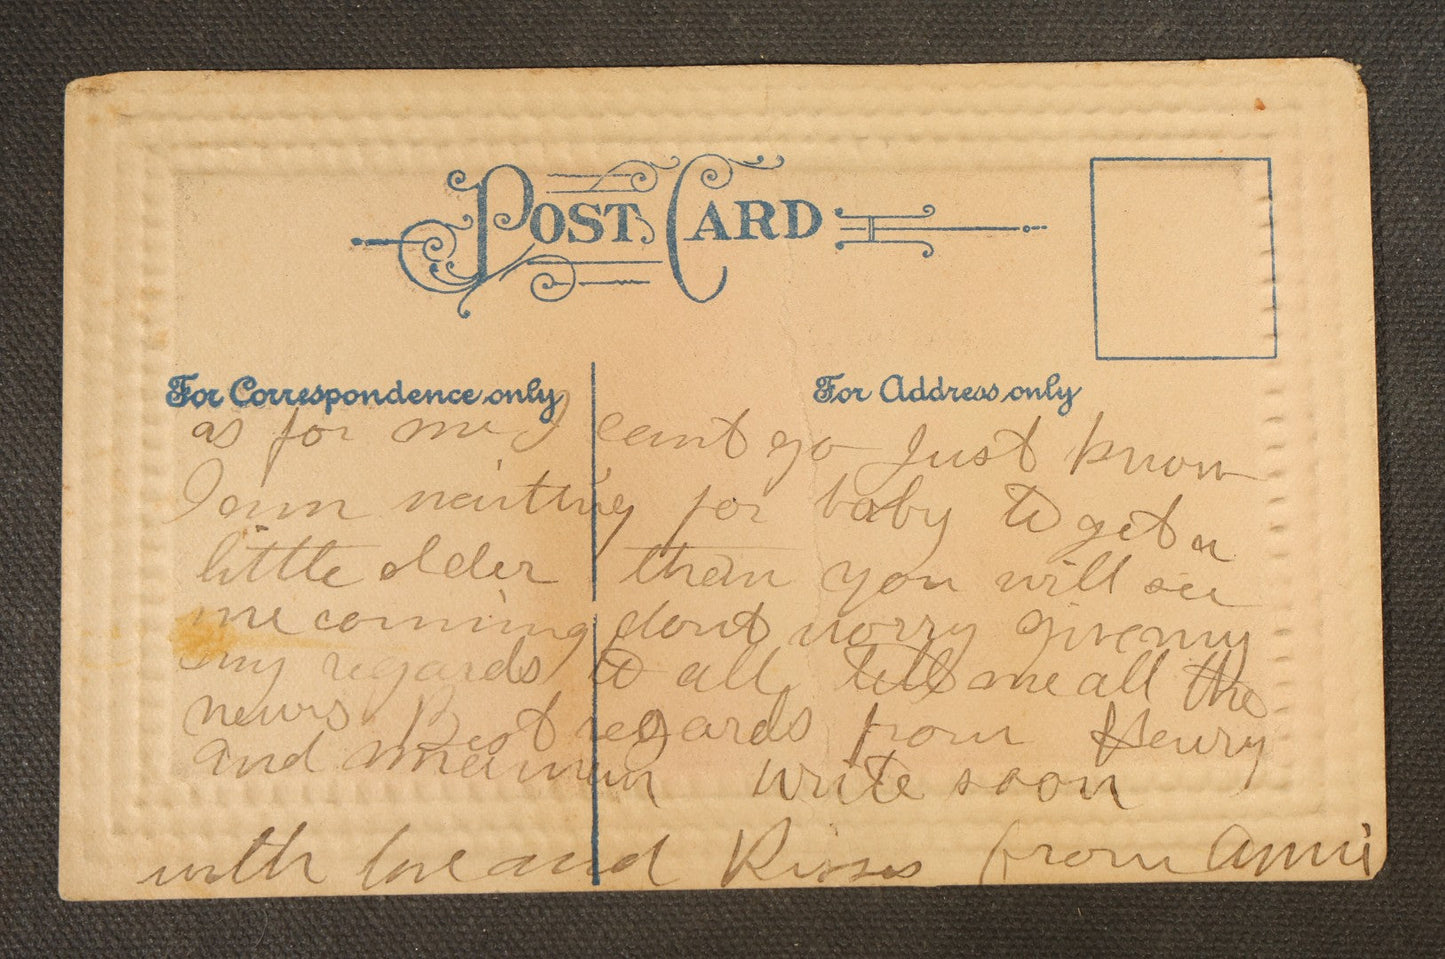 POST CARD
For Correspondence only
For Address only
as for me I cant go Just know
I am waitting for baby to get a
little older then you will see
me coming dont worry give my
my regards to all, tell me all the
news. Best regards from Henry
and
write soon
with love and Kisses from Annie